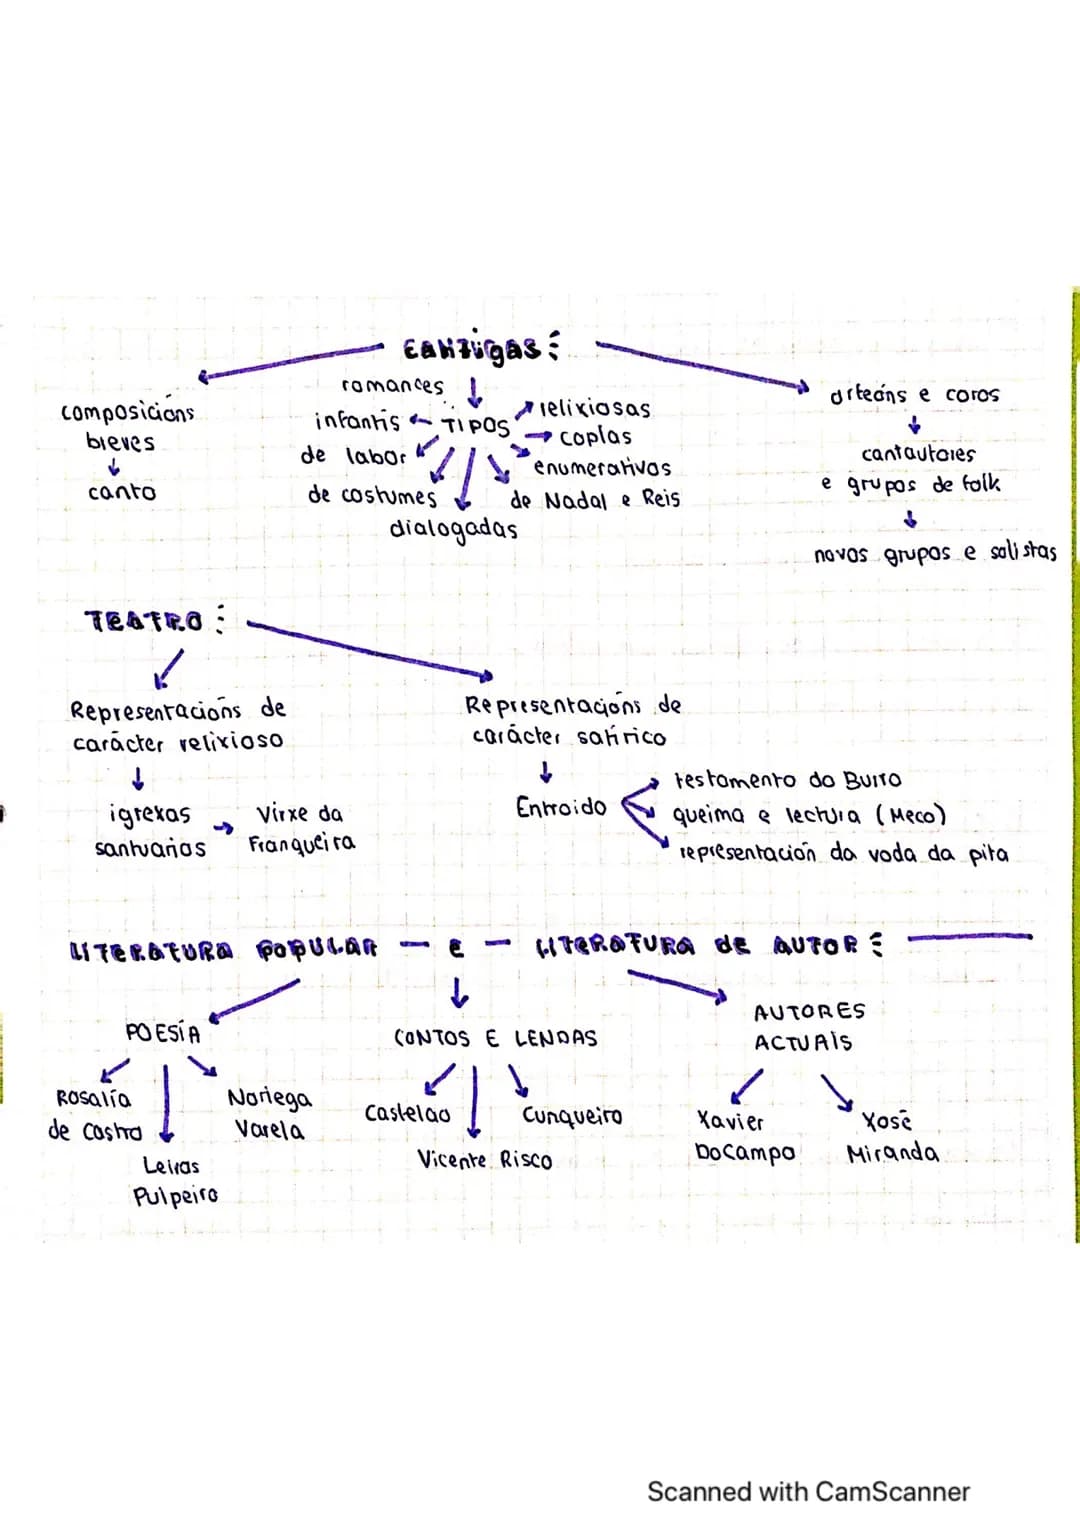 CANTIGAS:
composicións
breves
canto
romances
infantís
TIPOS
relixiosas
coplas
de labor
enumerativos
de costumes
de Nadal e Reis
dialogadas
orfeóns e coros
cantautores
e grupos de folk
novos grupos e solistas
TEATRO:
Representacións de
carácter relixioso
igrexas
santuarios
Virxe da
Franqueira
Representacións de
carácter satírico
Entroido
testamento do Burro
queima e lectura (Meco)
representación da voda da pita
LITERATURA POPULAR - E - LITERATURA DE AUTOR:
POESÍA
Rosalía
de Castro
Leiras
Pulpeiro
Noriega
Varela
CONTOS E LENDAS
Castelao
Vicente Risco
Cunqueiro
AUTORES
ACTUAÍS
Xavier
DoCampo
Xosé
Miranda
Scanned with CamScanner